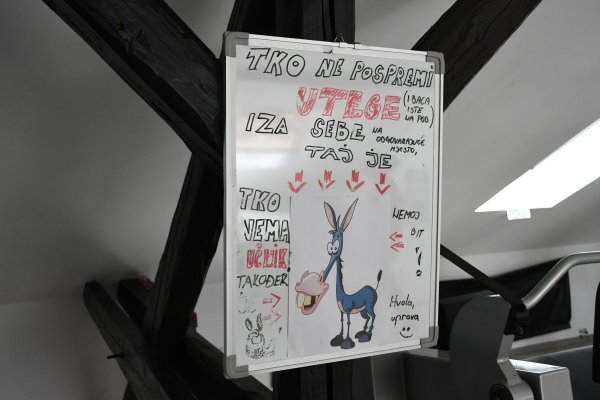 TKO NE POSPREMI
UTEGE
(I BACA
ISTE
NA POD)
IZA SEBE
NA
ODGOVARAJUĆE
MJESTO,
TAJ JE
TKO
NEMA
RUČNIK
TAKOĐER
NEMOJ
BIT
!
Hvala,
uprava